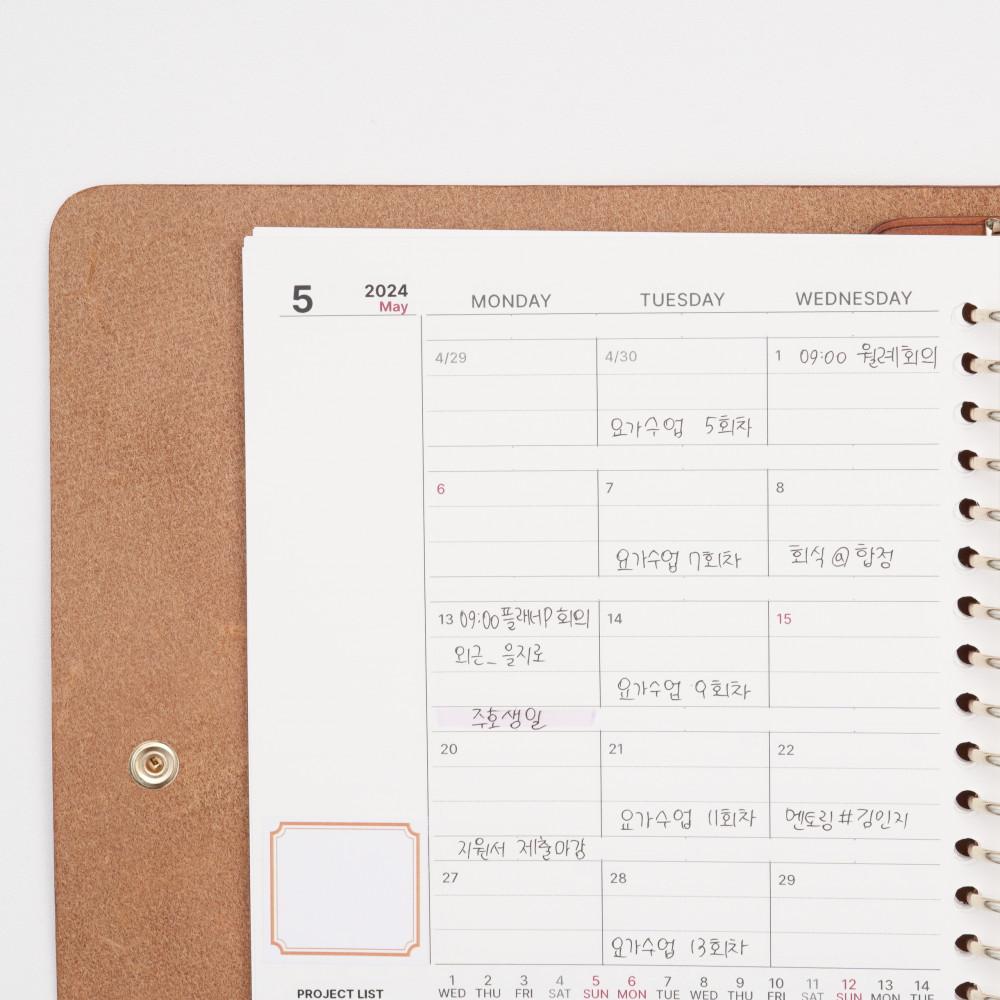 5
2024
May
MONDAY TUESDAY WEDNESDAY
4/29 4/30 1 09:00 월례회의
요가수업 5회차
6 7 8
요가수업 7회차 회식@합정
13 09:00 플래너P 회의 14 15
외근_을지로
요가수업 9회차
주호생일
20 21 22
요가수업 11회차 멘토링#김인지
지원서 제출마감
27 28 29
요가수업 13회차
PROJECT LIST
1 2 3 4 5 6 7 8 9 10 11 12 13 14
WED THU FRI SAT SUN MON TUE WED THU FRI SAT SUN MON TUE